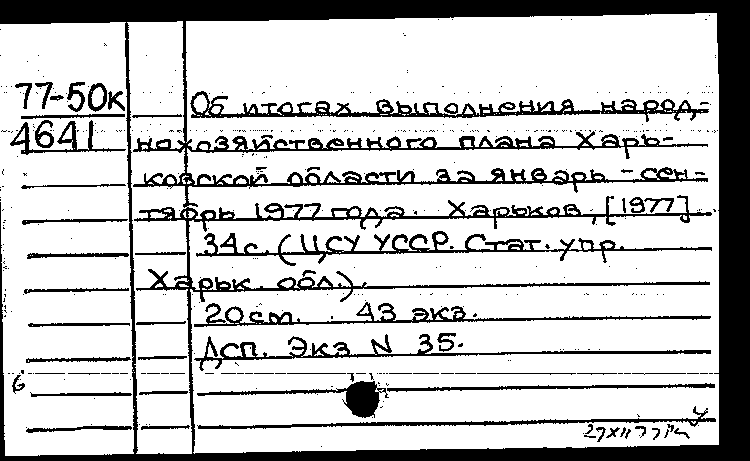 77-50к
4641
Об итогах выполнения народ-
нохозяйственного плана Харь-
ковской области за январь-сен-
тябрь 1977 года. Харьков, [1977].
34с. (ЦСУ УССР. Стат. упр.
Харьк. обл.).
20см. 43 экз.
Дсп. Экз N 35.
6
27 XII 77